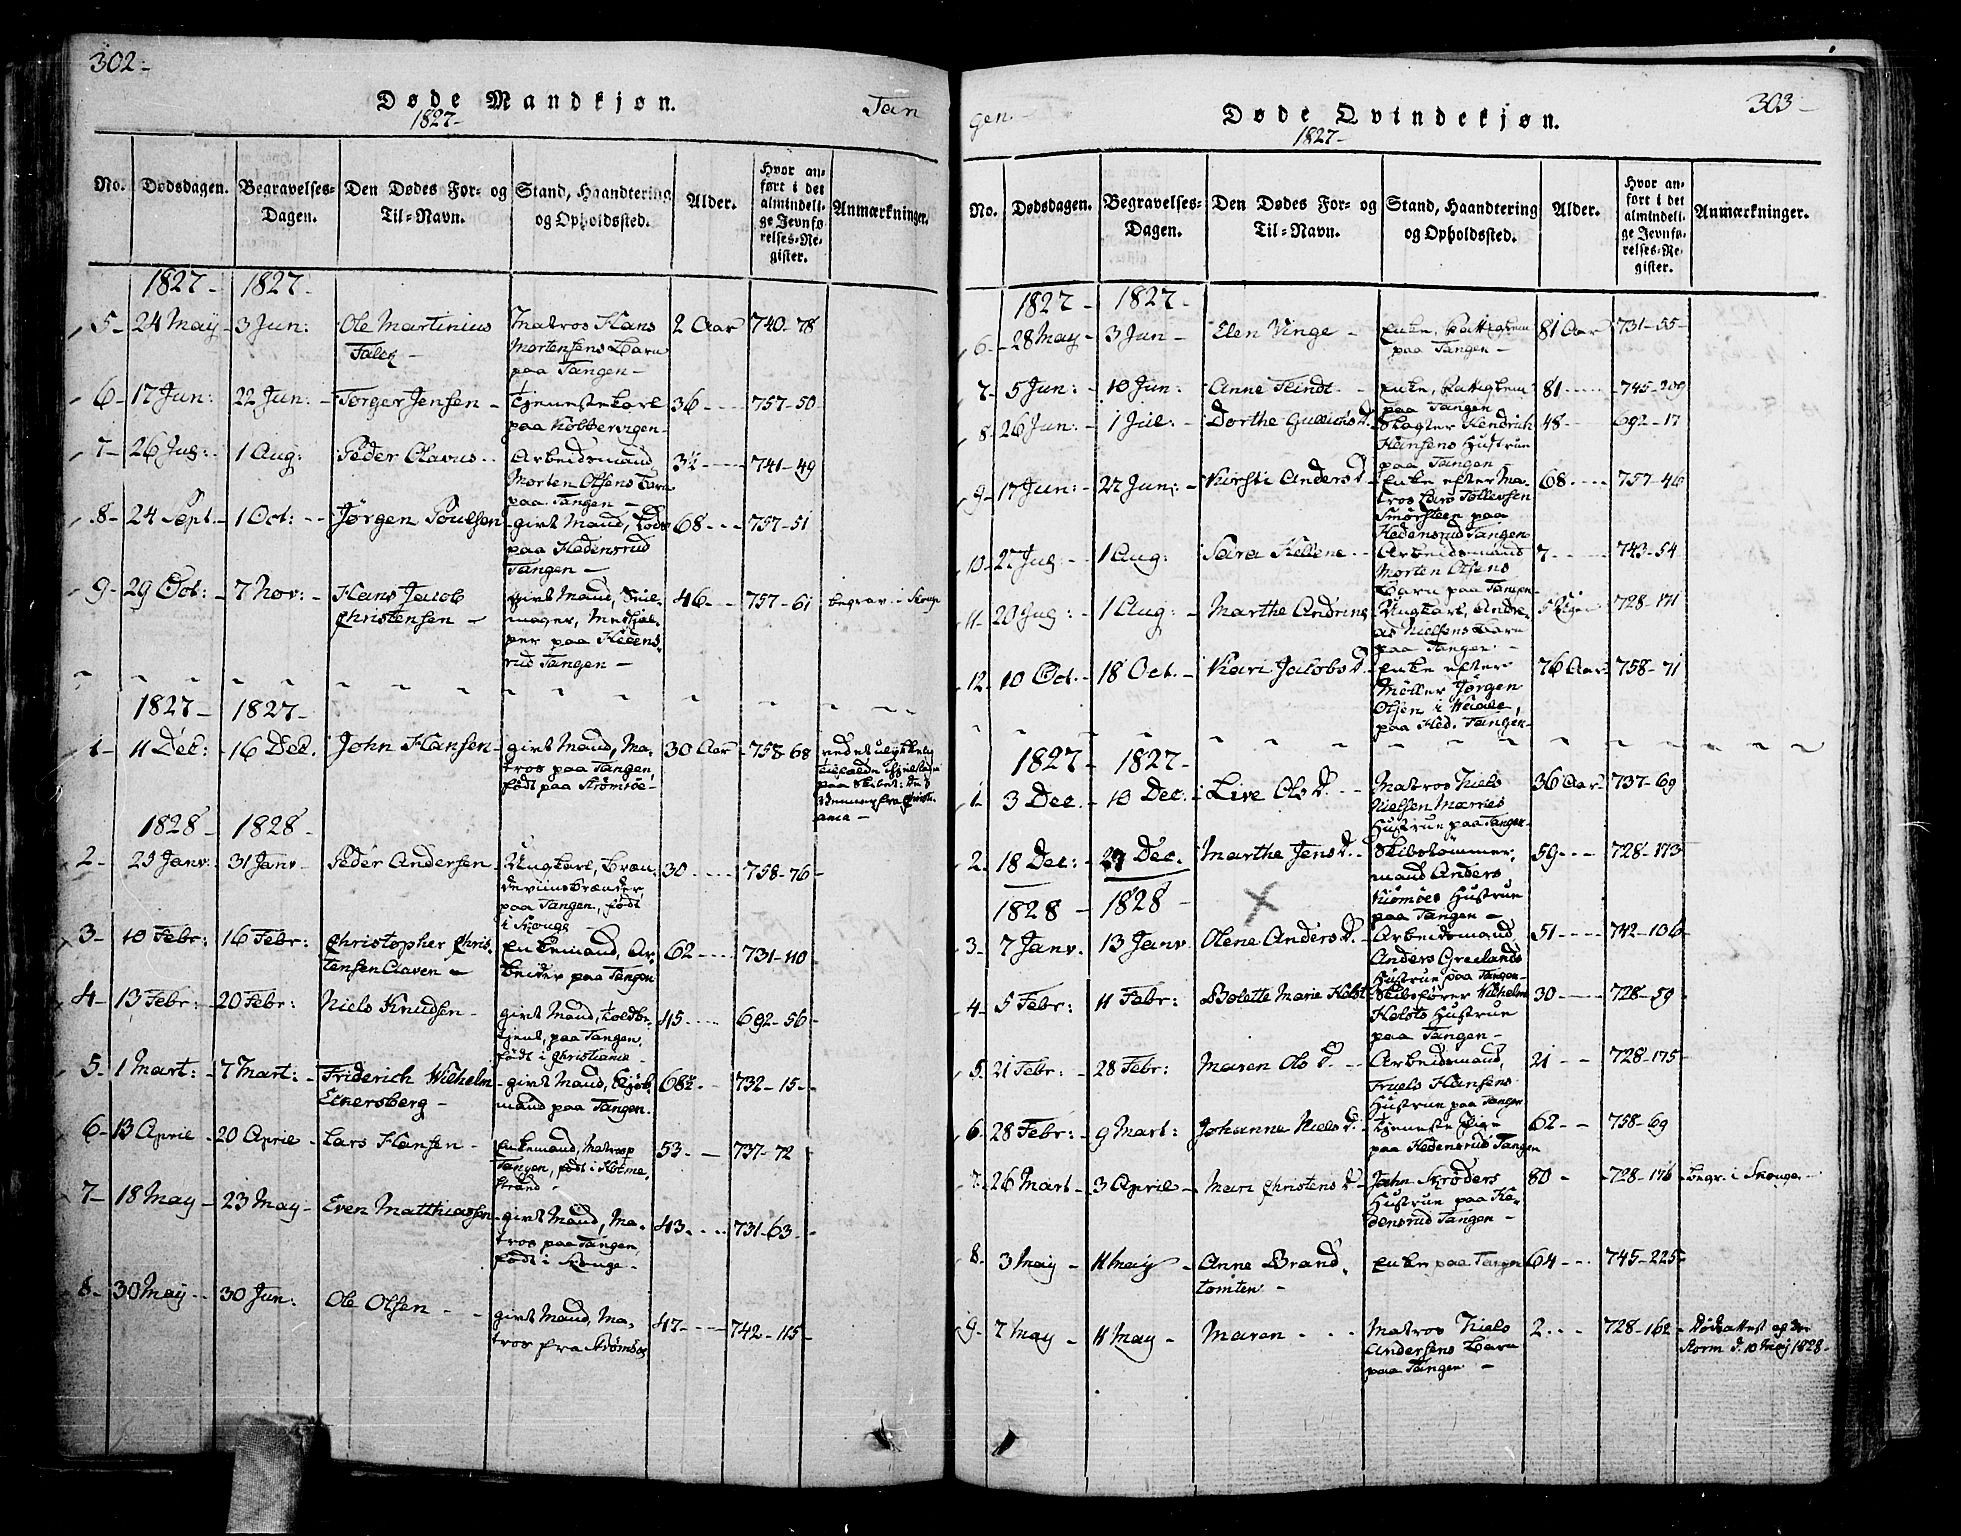 302.-
Døde Mandkjøn.
1827-
Tan
No.
Dødsdagen.
Begravelses-
Dagen.
Den Dødes For- og
Til-Navn.
Stand, Haandtering
og Opholdssted.
Alder.
Hvor an-
ført i det
almindeli-
ge Jevnfø-
relses-Re-
gister.
Anmærkninger.
1827- 1827-
5- 24 May- 3 Jun: Ole Martinius Matros Hans 2 Aar 740-78
Falck - Mortensens Barn
paa Tangen-
6- 17 Jun: 22 Jun: - Torger Jensen - tjenestekarl 36 - - - 757-50
paa
7- 26 Jul: - 1 Aug: Peder Olavus - - Arbeidsmand 3½ - - - 741-49
Morten Olsens Barn
paa Tangen -
8- 24 Sept.- 1 Oct: - - Jørgen Poulsen givt Mand, 68 - - - 757-51
paa Hedensrud
Tangen -
9- 29 Oct: - 7 Nov: Hans Jacob givt Mand, 46- - - 757-61 begrav. i Skouge
Christensen - mager, Medhjel-
per paa Hedens-
rud Tangen -
1827- 1827-
1- 11 Dec: - 16 Dec. John Hansen - givt Mand, Ma- 30 Aar 758-68 ved et ulykkelig
tros paa Tangen,
født paa Strømsøe- paa Skibet:
fra Christi-
ania -
1828- 1828-
2- 25 Janv: 31 Janv- Peder Andersen Ungkarl, Bræn- 30 - - - 758-76-
deviinsbrænder
paa Tangen, født
i Skouge -
3- 10 Febr: 16 Febr: Christopher Chris- Enkemand, Ar- 62 - - - 731-110
tensen Claven - beider paa Tangen
4- 13 Febr: - 20 Febr: Niels Knudsen - givt Mand, Toldbe- 45 - - - 692-56-
tjent, paa Tangen,
født i Christiania -
5- 1 Mart: - 7 Mart: - Friderich Wilhelm - givt Mand, 68½ - - 732-15-
Eckersberg - mand paa Tangen.
6- 13 April - 20 April - Lars Hansen - Enkemand, Matros p 53- - 737-72-
Tangen, født i Holme-
strand -
7- 18 May - 23 May- Even Matthiassen - givt Mand, Ma- 43 - - - 731-63-
tros paa Tangen,
født i Skouge-
8- 30 May - - 30 Jun: Ole Olsen - - givt Mand, Ma- 47- - - 742-115-
tros fra Strømsøe
303-
gen.-
Døde Qvindekjøn.
1827-
No.
Dødsdagen.
Begravelses-
Dagen.
Den Dødes For- og
Til-Navn.
Stand, Haandtering
og Opholdssted.
Alder.
Hvor an-
ført i det
almindeli-
ge Jevnfø-
relses-Re-
gister.
Anmærkninger.
1827- 1827-
6- 28 May- 3 Jun - Elen Vinge - Enke, Fattiglem 81 Aar 731-55-
paa Tangen -
7- 5 Jun: - 10 Jun: Anne Flindt - Enke, Fattiglem 81 - - - 745-209
paa Tangen
8- 26 Jun: 1 Jul: - Dorthe Gullichs D. Slagter Hendrich 48 - - - 692-17
Hansens Hustrue
paa Tangen
9- 17 Jun: - 22 Jun: - Kirsti Anders D. Enke efter Ma- 68 - - - 757-46
tros Lars Tollevsen
Smørsteen paa
Hedensrud Tangen
10- 27 Jul: - 1 Aug: Sara Hellene - - Arbeidsmand 7 - - - 743-54-
Morten Olsens
Barn paa Tangen
11- 20 Jul: - 1 Aug: - Marthe Andrine Ungkarl, Andre- 5 Uger 728-171
as Nielsens Barn
paa Tangen -
12- 10 Oct.- 18 Oct. - Kari Jacobs D. - Enke efter 76 Aar 758-71
Møller Jørgen
Olsen i
paa Hed. Tangen-
1827- 1827-
1. 3 Dec. - 10 Dec. - Live Ols D. - - Matros Niels 36 Aar 737-69
Nielsen
Hustrue paa Tangen-
2. 18 Dec: - Dec. Marthe Jens D. - Skibstømmer- 59 - - - 728-173
mand Anders
Hustrue
paa Tangen -
1828 - 1828 -
3- 7 Janv. 13 Janv. Olene Anders D. - Arbeidsmand 51 - - - 742-106-
Anders Greelands
Hustrue paa Tangen-
4- 5 Febr: 11 Febr: Bolette Marie Holst Skibsfører Wilhelm 30 - - - 728-59-
Holsts Hustrue
paa Tangen -
5. 21 Febr: - 28 Febr: Maren Ols D. - - Arbeidsmand, 21 - - 728-175-
Truels Hansens
Hustrue paa Tangen
6- 28 Febr: - 9 Mart: Johanne Niels D. - tjeneste Pige 62 - - 758-69
paa Hedensrud Tangen
7- 26 Mart - 3 April - Mari Christens D - John Skrøders 80 - 728-176 - Begr. i Skouge -
Hustrue paa He-
densrud Tangen -
8- 3 May - 11 May - Anne Brand- Enke paa Tangen 64 - - - 745-225-
tomten -
9- 7 May - 11 May - Maren - - - Matros Niels 2 - - - 728-162 - Dødsattest af Dr
Andersens Barn Storm d. 10 May 1828-
paa Tangen -